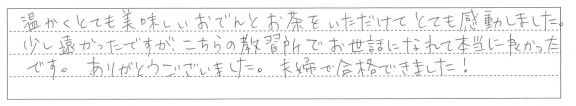 温かくとても美味しいおでんとお茶をいただけてとても感動しました。
少し遠かったですが、こちらの教習所でお世話になれて本当に良かった
です。ありがとうございました。夫婦で合格できました！